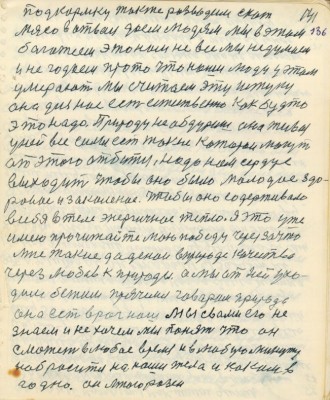 подкормку также разводим скот 141
мясо в отвал даем людям мы в этом 136
богатеем этом нам не все мы не думаем
и не гадаем про то что наши люди у этом
умерают мы считаем эту штуку
она для нас есть естественно как будто
это надо. Природу не обдуриш она живая
у ней все силы есть такие которая могут
от этого отбить, надо нам сердце
выходит чтобы оно было молодое здо-
ровае и закаленое. Чтобы оно содерживало
в себя в теле энергичное тепло. Я это уже
имею прочитайте мою победу через за что
мне такие даденаи в природе качества
через любовь к природе. а мы от ней ухо-
дим бежим причини говарим природа
она есть враг наш мы с вами его не
знаем и не хочем мы понять что он
сможет в любое время и в любую минуту
набросится на наши тела и каким
годно. он многоразен